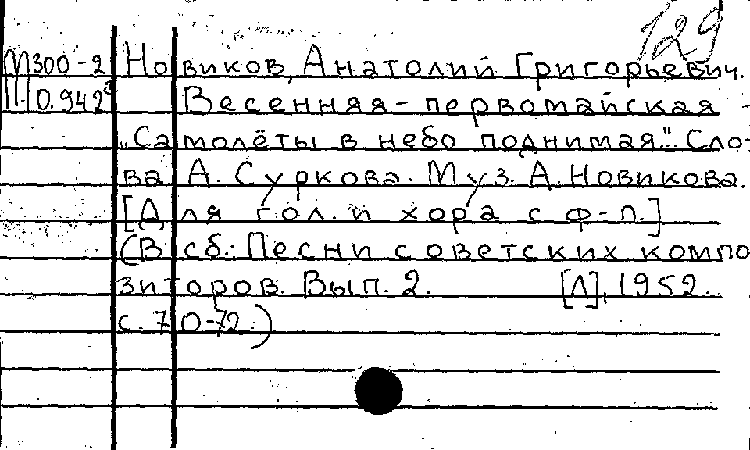 129
М300-2 Новиков, Анатолий Григорьевич.
П0.942 Весенняя-первомайская -
"Самолёты в небо поднимая". Сло-
ва А. Суркова. Муз. А. Новикова.
[Для гол. и хора с ф-п.]
(В сб.: Песни советских компо
зиторов. Вып. 2. [Л], 1952.
с. 70-72.)